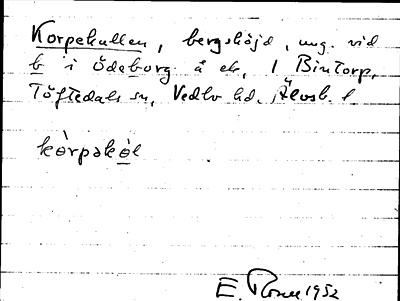 Korpekullen, bergshöjd, ung. vid
b i Ödeborg å ek, 1 Bintorp,
Töftedals sn, Vedbo hd. Älvsb. l
kòrpəkòl
E. Rosell 1952